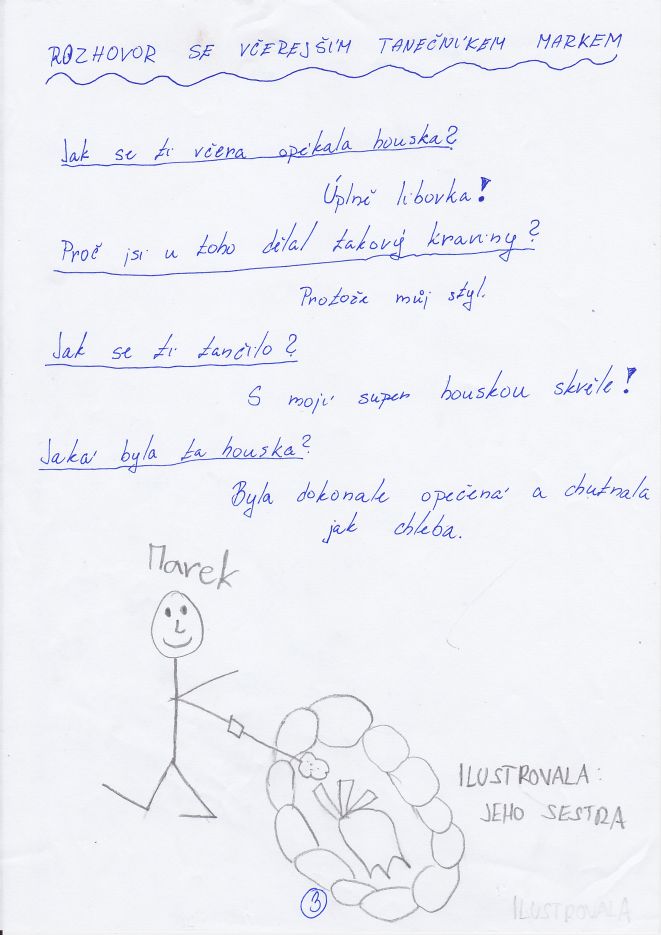 ROZHOVOR SE VČEREJŠÍM TANEČNÍKEM MARKEM
Jak se ti včera opékala houska?
Úplně libovka!
Proč jsi u toho dělal takový kraviny?
Protože můj styl.
Jak se ti tančilo?
S mojí super houskou skvěle!
Jaká byla ta houska?
Byla dokonale opečená a chutnala
jak chleba.
Marek
ILUSTROVALA:
JEHO SESTRA
3
ILUSTROVALA